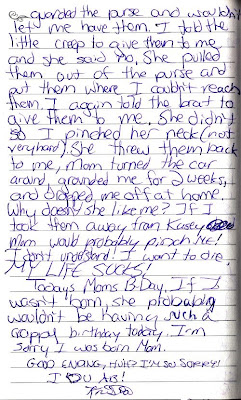 guarded the purse and wouldn't
let me have them. I told the
little creep to give them to me
and she said no. She pulled
them out of the purse and
put them where I couldn't reach
them. I again told the brat to
give them to me. She didn't
so I pinched her neck (not
very hard). She threw them back
to me, Mom turned the car
around, grounded me for 2 weeks,
and dropped me off at home.
Why doesn't she like me? If I
took them away from Kasey
Mom would probably pinch me!
I don't understand! I want to die!
MY LIFE SUCKS!
Todays Moms B-Day. If I
wasn't born, she probably
wouldn't be having such a
crappy birthday today. I'm
sorry I was born Mom.
GOOD EVENING, HUH? I'M SO SORRY!
I